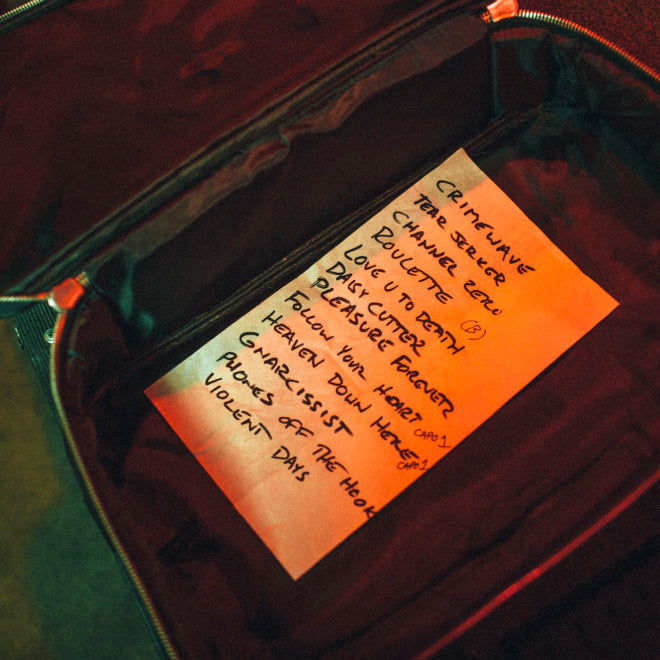 CRIMEWAVE
TEAR JERKER
CHANNEL ZERO
ROULETTE (B)
LOVE U TO DEATH
DAISY CUTTER
PLEASURE FOREVER
FOLLOW YOUR HEART CAPO 1
HEAVEN DOWN HERE CAPO 1
GNARCISSIST
PHONES OFF THE HOOK
VIOLENT DAYS